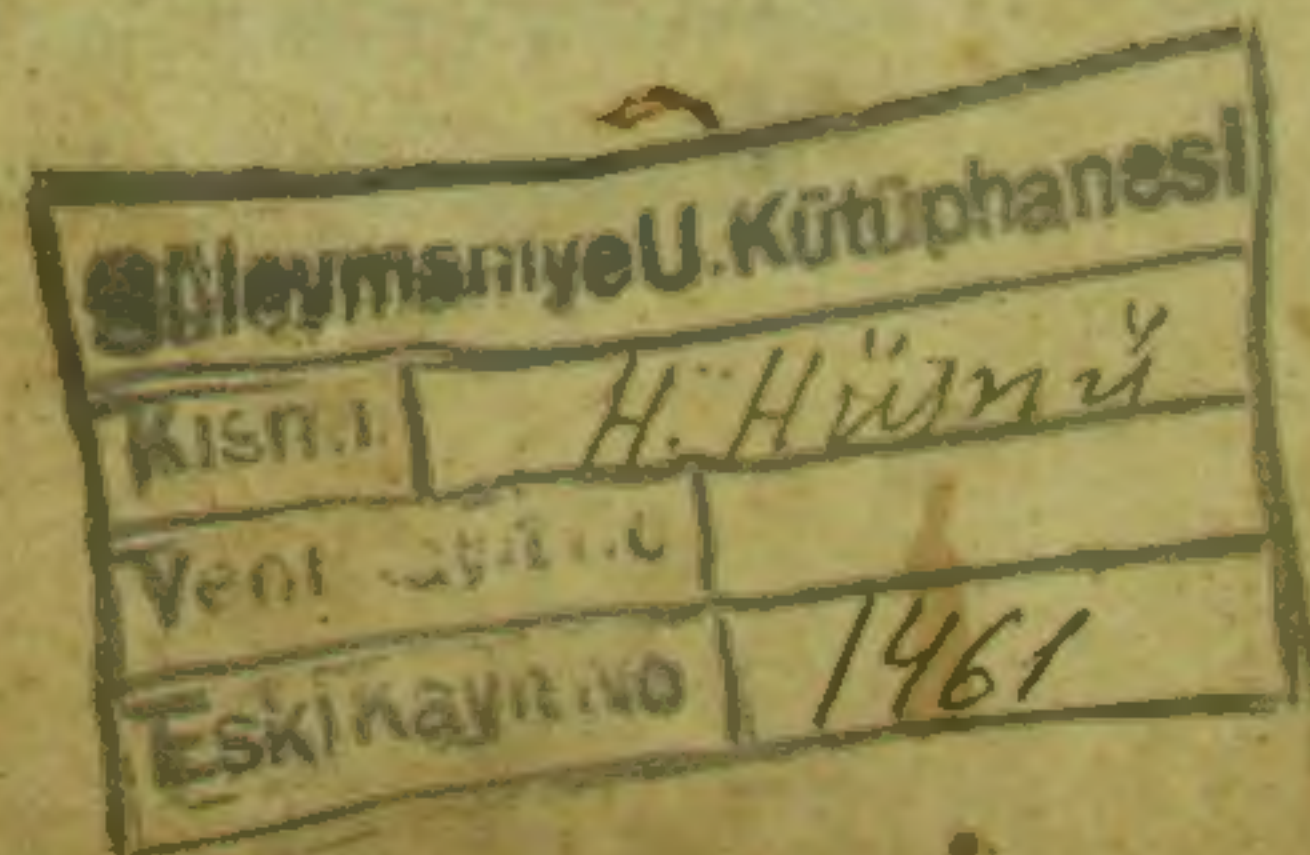 Süleymaniye U. Kütüphanesi
Kısmı H. Hüsnü
Yeni Kayıt No
Eski Kayıt No 1461